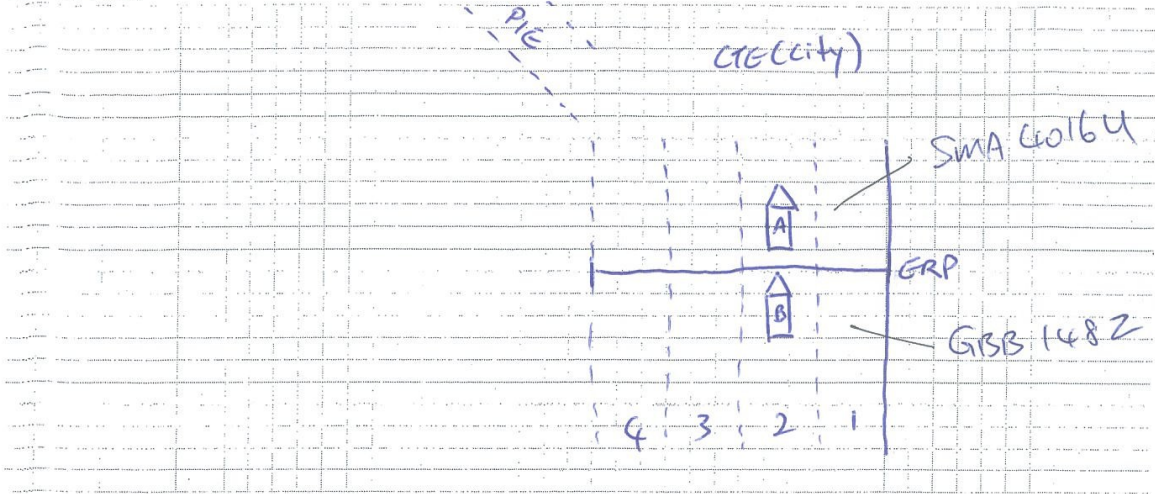 P/E
CTE (City)
SMA 4016U
A
ERP
B
GBB 148Z
4 3 2 1